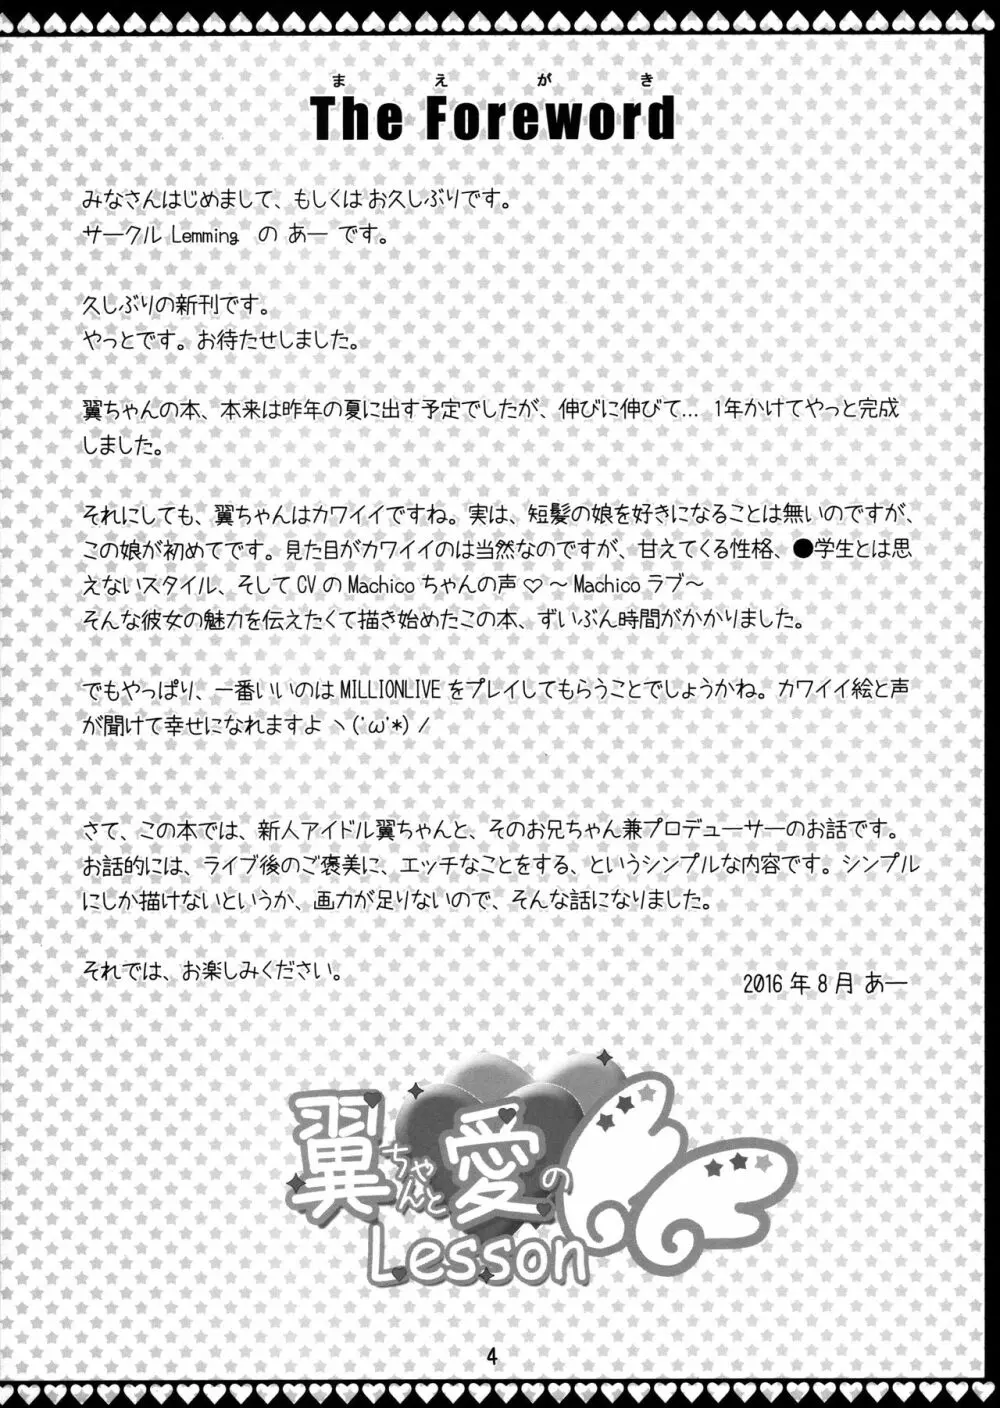 まえがき
The Foreword
みなさんはじめまして、もしくはお久しぶりです。
サークル Lemming の あー です。
久しぶりの新刊です。
やっとです。お待たせしました。
翼ちゃんの本、本来は昨年の夏に出す予定でしたが、伸びに伸びて... 1年かけてやっと完成
しました。
それにしても、翼ちゃんはカワイイですね。実は、短髪の娘を好きになることは無いのですが、
この娘が初めてです。見た目がカワイイのは当然なのですが、甘えてくる性格、●学生とは思
えないスタイル、そしてCVのMachicoちゃんの声♡～Machicoラブ～
そんな彼女の魅力を伝えたくて描き始めたこの本、ずいぶん時間がかかりました。
でもやっぱり、一番いいのはMILLIONLIVEをプレイしてもらうことでしょうかね。カワイイ絵と声
が聞けて幸せになれますよヽ('ω'*)/
さて、この本では、新人アイドル翼ちゃんと、そのお兄ちゃん兼プロデューサーのお話です。
お話的には、ライブ後のご褒美に、エッチなことをする、というシンプルな内容です。シンプル
にしか描けないというか、画力が足りないので、そんな話になりました。
それでは、お楽しみください。
2016年8月 あー
翼ちゃんと愛の
Lesson
4